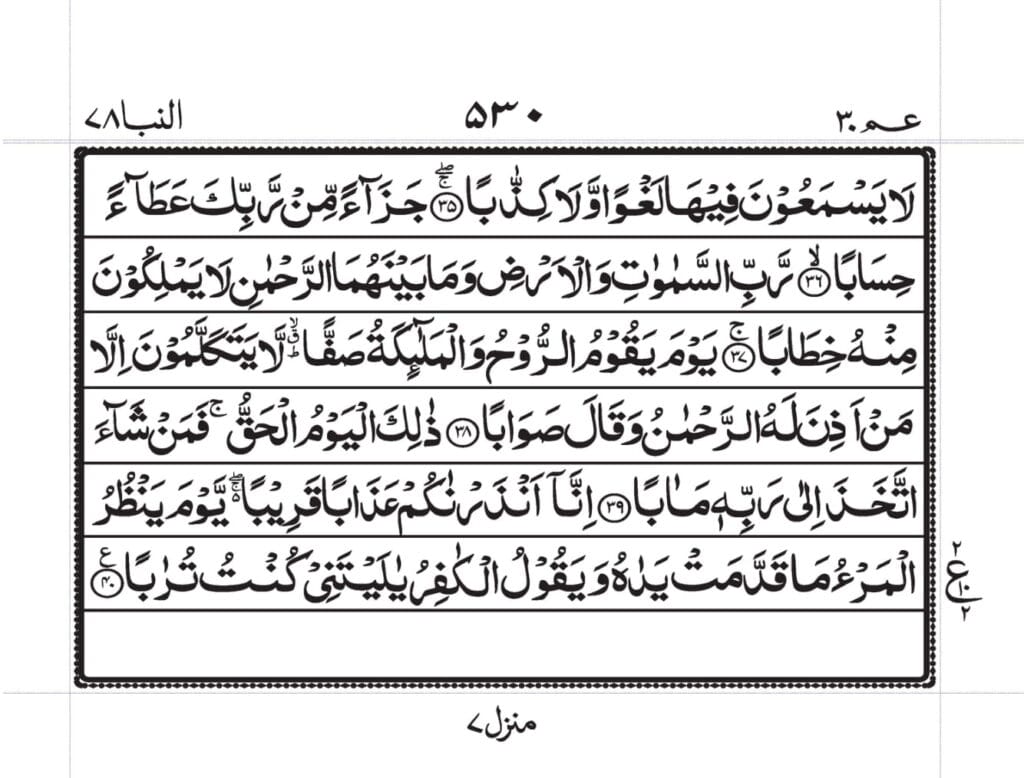 عم ٣٠ ۵۳۰ النبا ٧٨
لَا يَسْمَعُوْنَ فِيْهَا لَغْوًا وَّلَا كِذّٰبًا ۚۖ ﴿٣٥﴾ جَزَآءً مِّنْ رَّبِّكَ عَطَآءً
حِسَابًا ۙ ﴿٣٦﴾ رَّبِّ السَّمٰوٰتِ وَالْاَرْضِ وَمَا بَيْنَهُمَا الرَّحْمٰنِ لَا يَمْلِكُوْنَ
مِنْهُ خِطَابًا ۚ ﴿٣٧﴾ يَوْمَ يَقُوْمُ الرُّوْحُ وَالْمَلٰٓئِكَةُ صَفًّا ۙؕ لَّا يَتَكَلَّمُوْنَ اِلَّا
مَنْ اَذِنَ لَهُ الرَّحْمٰنُ وَقَالَ صَوَابًا ﴿٣٨﴾ ذٰلِكَ الْيَوْمُ الْحَقُّ ۚ فَمَنْ شَآءَ
اتَّخَذَ اِلٰى رَبِّهٖ مَاٰبًا ﴿٣٩﴾ اِنَّآ اَنْذَرْنٰكُمْ عَذَابًا قَرِيْبًا ۚۖ يَّوْمَ يَنْظُرُ
الْمَرْءُ مَا قَدَّمَتْ يَدٰهُ وَيَقُوْلُ الْكٰفِرُ يٰلَيْتَنِيْ كُنْتُ تُرٰبًا ﴿٤٠﴾ ع
٢
ع ١٠
٢
منزل ٧